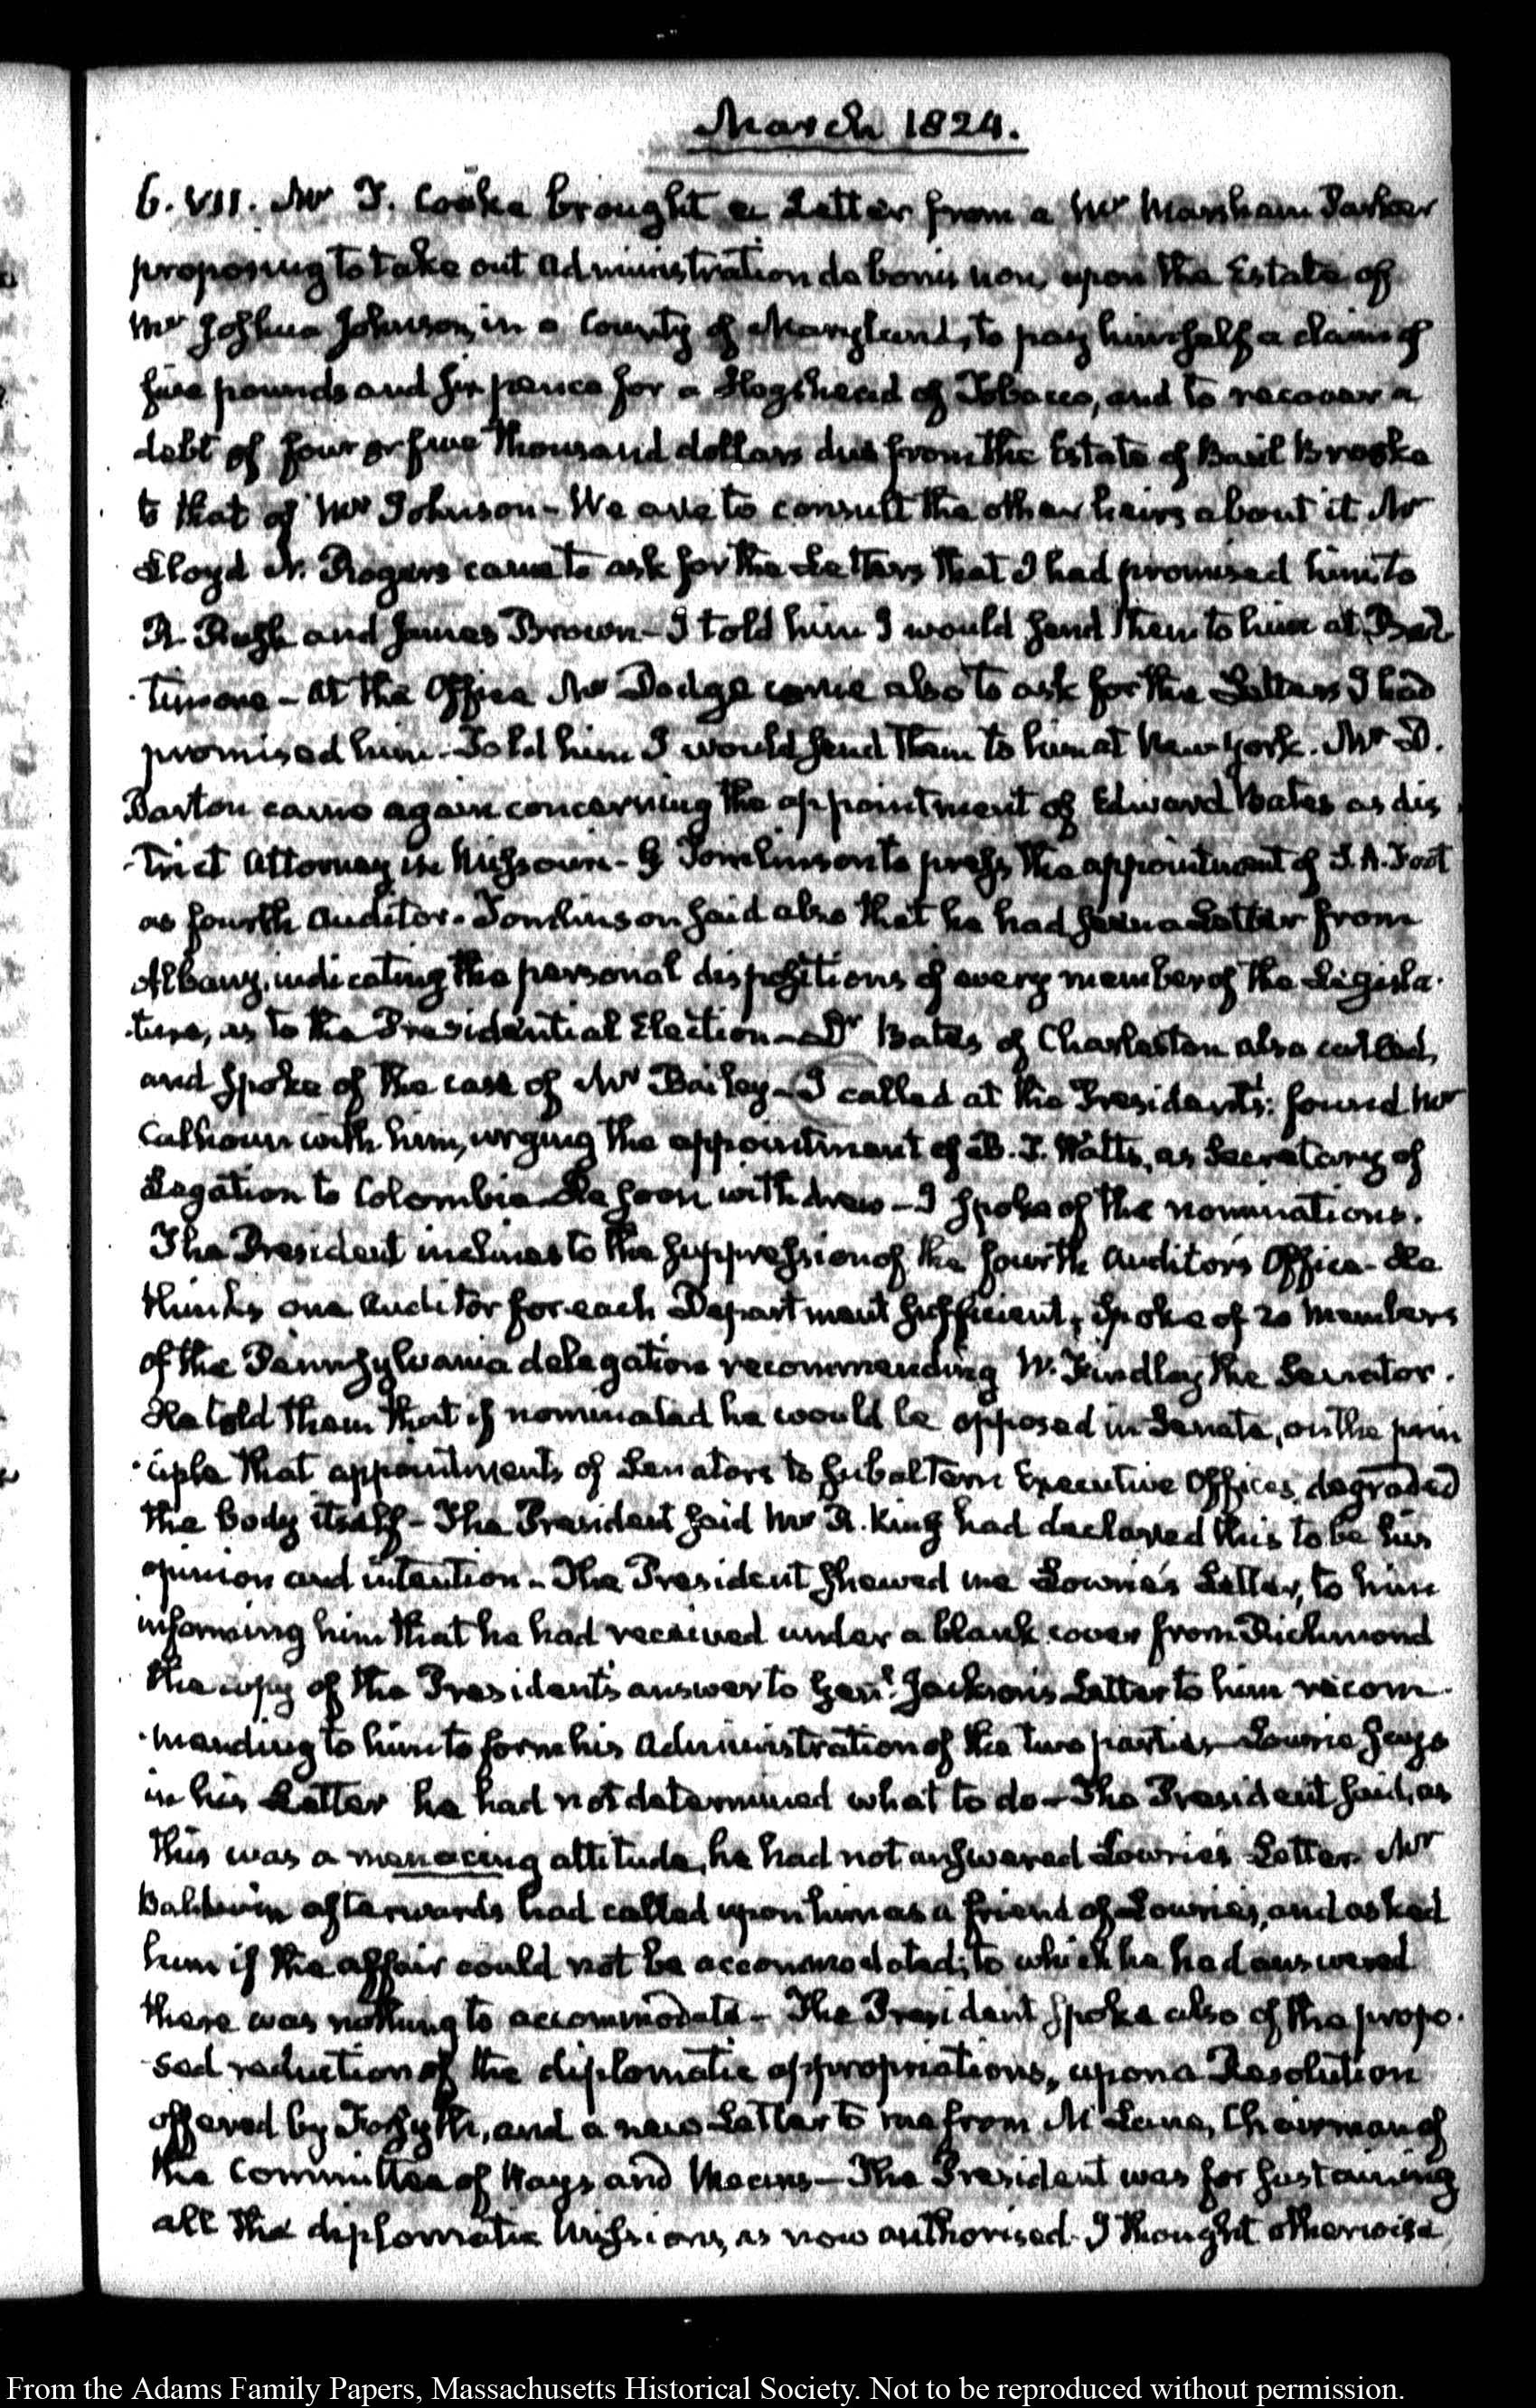 March 1824.
6. VII. Mr T. Cooke brought a Letter from a Mr Marsham Parker
proposing to take out administration de bonis non, upon the Estate of
Mr Joshua Johnson, in a County of Maryland, to pay himself a claim of
five pounds and six pence for a Hogshead of Tobacco, and to recover a
debt of four or five thousand dollars due from the Estate of Basil Brooke
to that of Mr Johnson - We are to consult the other heirs about it Mr
Lloyd N. Rogers came to ask for the Letters that I had promised him to
R. Rush and James Brown - I told him I would send them to him at Bal
-timore - At the Office Mr Dodge came also to ask for the Letters I had
promised him - Told him I would send them to him at New-York. Mr D.
Barton came again concerning the appointment of Edward Bates as dis
-trict Attorney in Missouri - G Tomlinson to press the appointment of S. A. Foot
as fourth Auditor. Tomlinson said also that he had seen a Letter from
Albany, indicating the personal dispositions of every member of the Legisla-
-ture, as to the Presidential Election - Dr Bates of Charleston also called,
and spoke of the case of Mr Bailey - I called at the President's: found Mr
Calhoun with him, urging the appointment of B. T. Watts, as Secretary of
Legation to Colombia - He soon withdrew - I spoke of the nominations.
The President inclines to the suppression of the fourth Auditor's Office - He
thinks one Auditor for each Department sufficient, spoke of 20 Members
of the Pennsylvania delegation recommending W. Findlay the Senator.
He told them that if nominated he would be opposed in Senate, on the prin
-ciple that appointments of Senators to subaltern Executive Offices, degraded
the body itself - The President said Mr R. King had declared this to be his
opinion and intention - The President shewed me Lowrie's Letter, to him
informing him that he had received under a blank cover from Richmond
the copy of the President's answer to Genl. Jackson's Letter to him recom-
-mending to him to form his Administration of the two parties - Lowrie says
in his Letter he had not determined what to do - The President said, as
this was a menacing attitude, he had not answered Lowrie's Letter. Mr
Baldwin afterwards had called upon him as a friend of Lowrie's, and asked
him if the affair could not be accommodated; to which he had answered
there was nothing to accommodate - The President spoke also of the propo-
-sed reduction of the diplomatic appropriations, upon a Resolution
offered by Forsyth, and a new Letter to me from McLane, Chairman of
the Committee of Ways and Means - The President was for sustaining
all the diplomatic Missions, as now authorised - I thought otherwise,
From the Adams Family Papers, Massachusetts Historical Society. Not to be reproduced without permission.